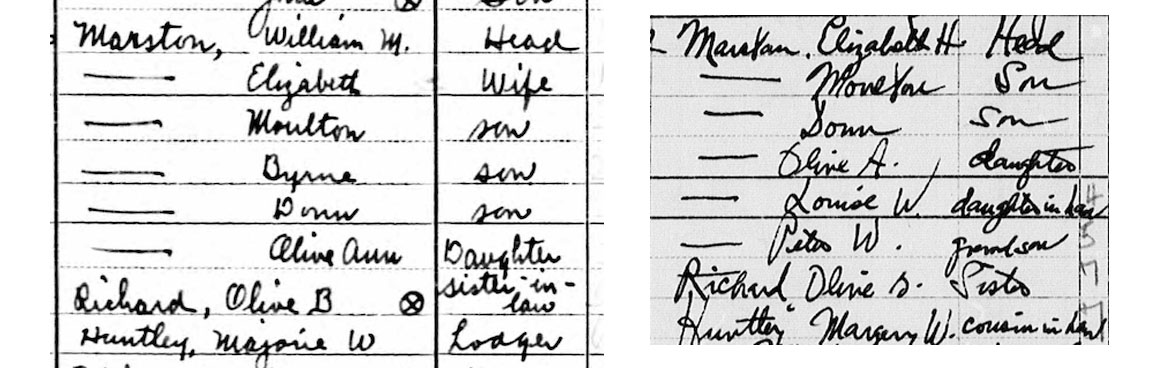 Son
Marston, William M. Head
Elizabeth Wife
Moulton son
Byrne son
Donn son
Olive Ann Daughter
Richard, Olive B ⊗ sister-in-law
Huntley, Majorie W Lodger
Marston, Elizabeth H. Head
Moulton Son
Donn Son
Olive A. daughter
Louise W. daughter in law
Peter W. grandson
Richard Olive B. Sister
Huntley Margery W. cousin in law